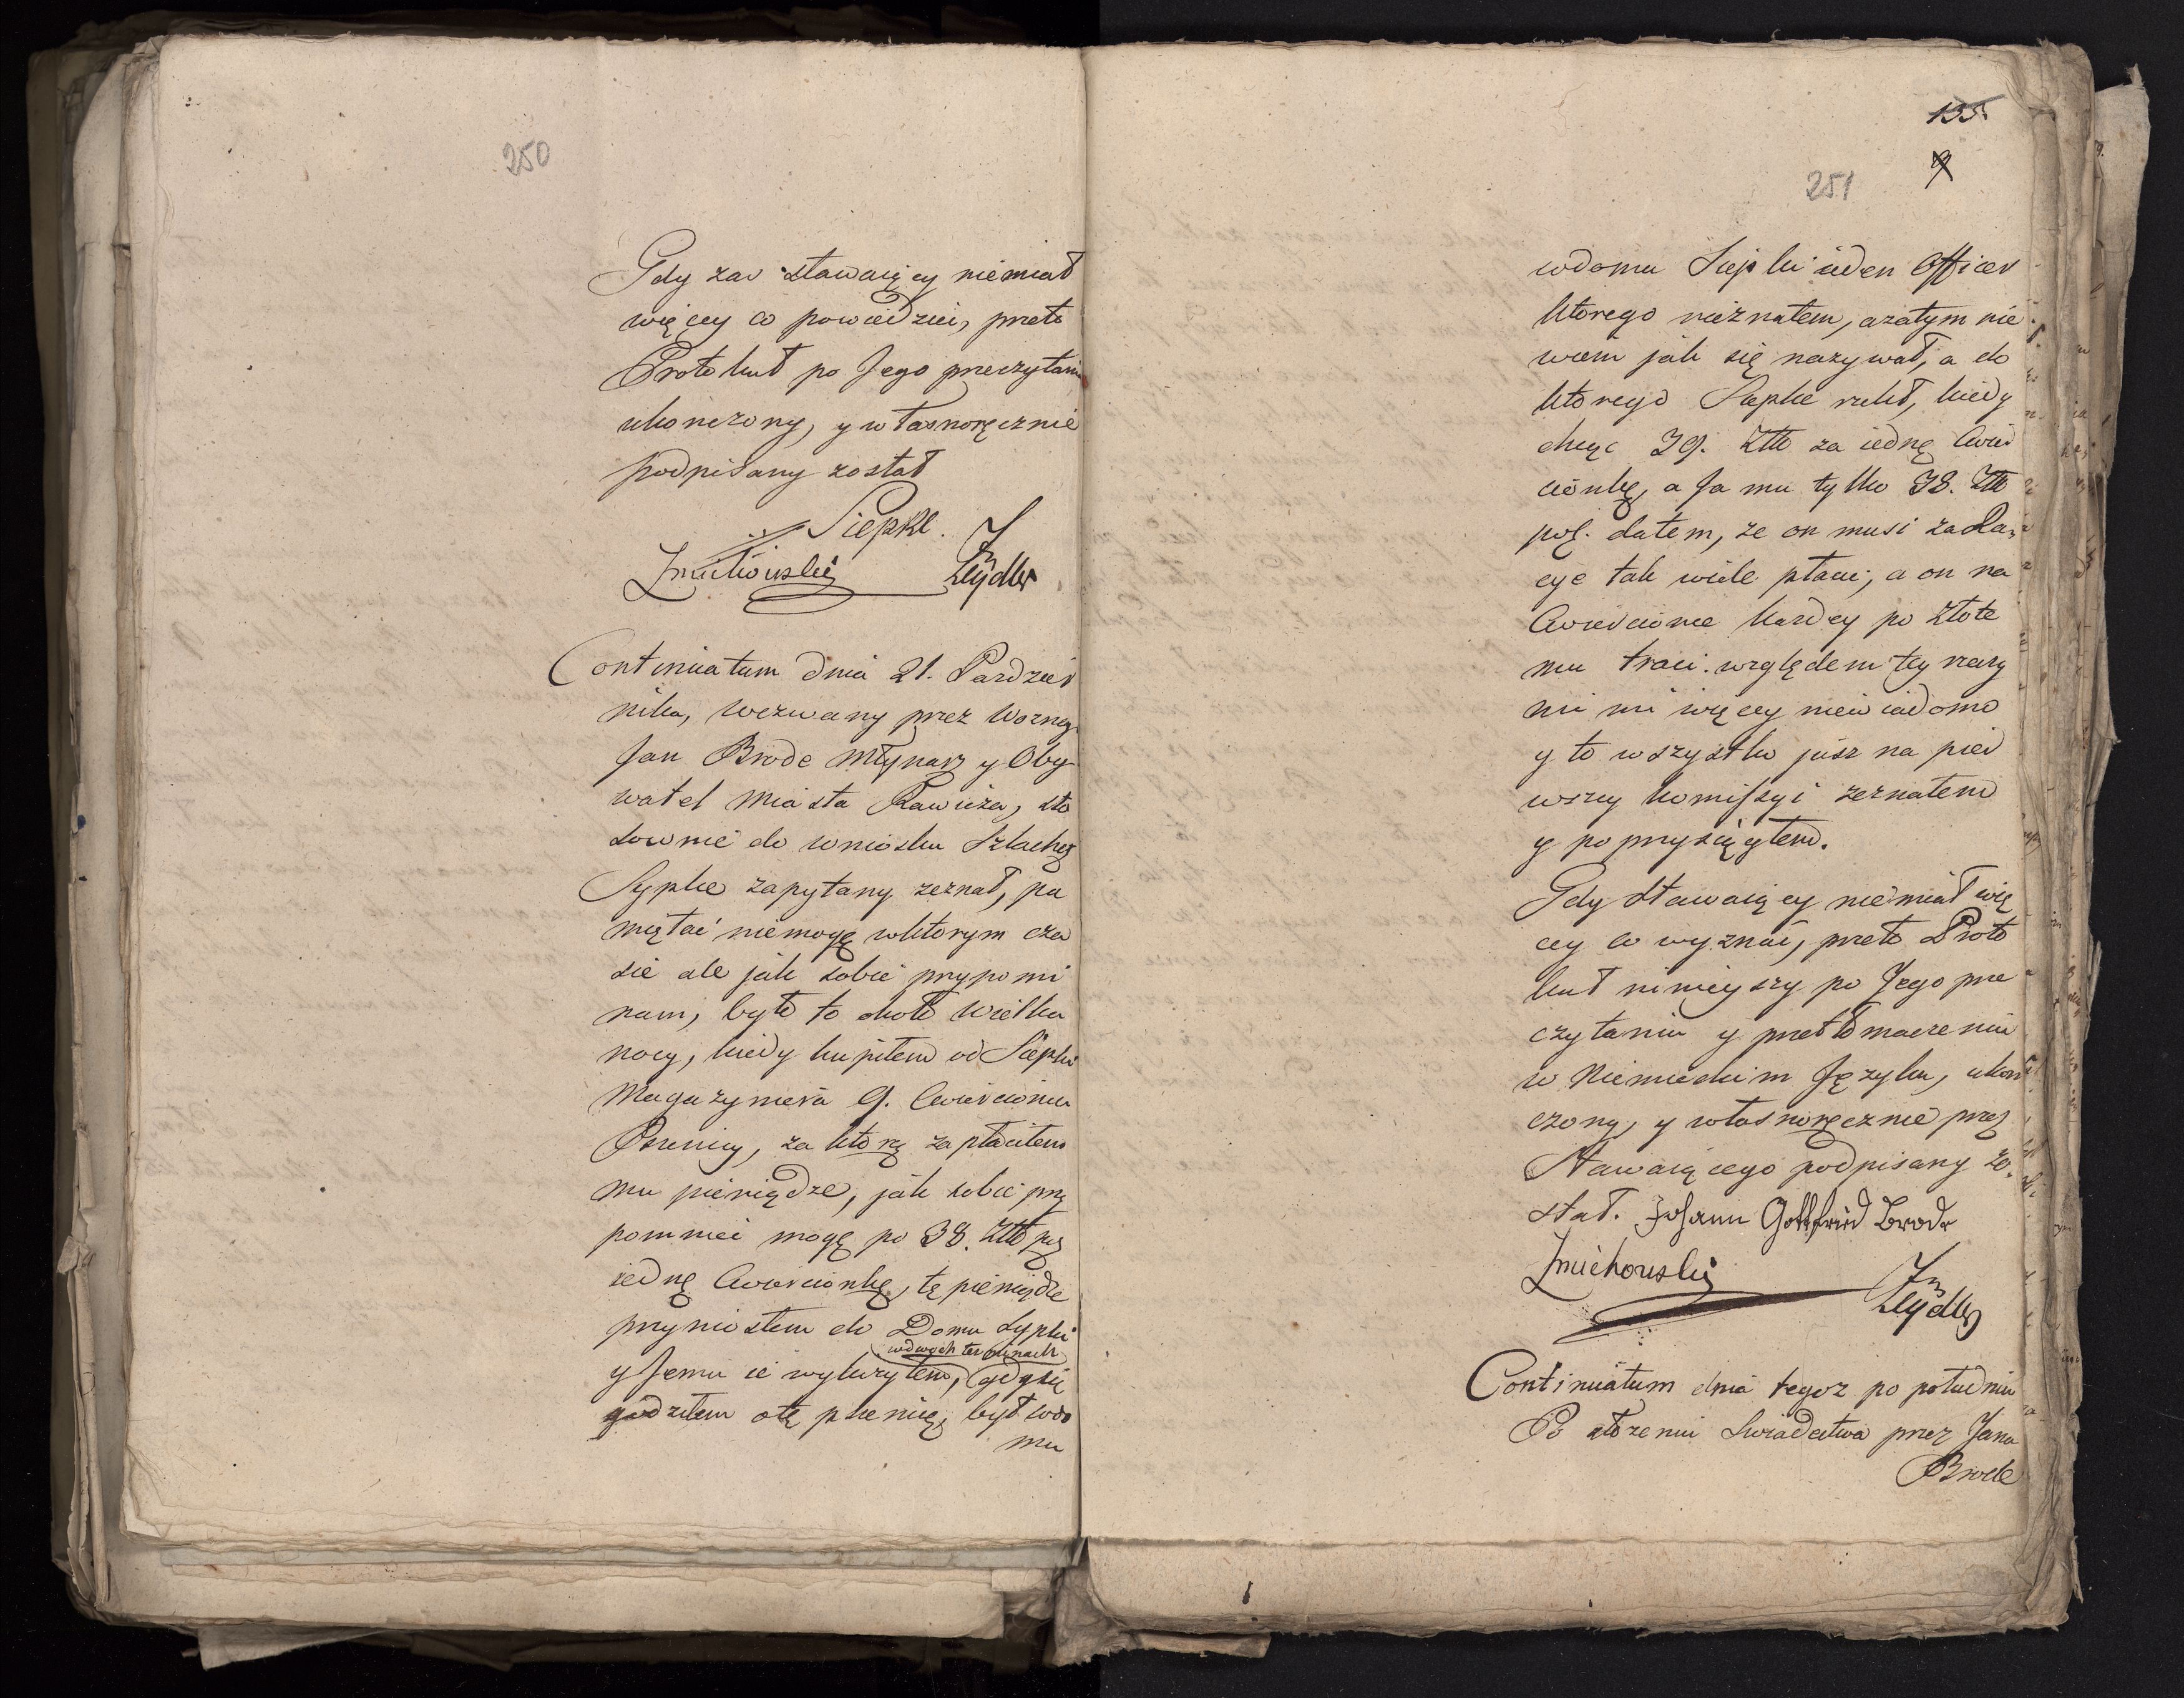 250
Gdy zas stawaiący niemiał
więcy co powiedziei, preto
Protokuł po Jego preczytaniu
ukonczony, y własnoręcznie
podpisany został
Siepke.
Zmichowski Zeydler
Continuatum dnia 21. Pazdzier
nika, wezwany przez Woznego
Jan Brode Młynarz y Oby
watel Miasta Rawicza, sto
sownie do wniosku Szlacheg
Sypke zapytany zeznał, pa
miętać niemogę wktorym cza
sie ale jak sobie prypomi
nam, było to około Wielka
nocy, kiedy kupiłem od Siepki
Magazyniera 9. Cwiercionek
Psenicy, za ktorą zapłaciłem
mu pieniądze, jak sobie pry
pomniei mogę po 38. Złł pol
iednę Cwiercionkę, tę pieniądze
pryniosłem do Domu Sypki
wdwoch terminach
y Jemu ie wyliczyłem, gdysię
godziłem otę psenicę, był wdo
mu
135.
9
251
wdomu Siepki ieden Officer
ktorego nieznałem, azatym nie
wiem jak się nazywał, a do
ktorego Siepke rzekł, kiedy
chciąc 39. Złł za iednę Cwier
cionkę, a Ja mu tylko 38. Złł
pol. dałem, ze on musi za Ra
cye tak wiele płacic, a on na
Cwiercionce kazdey po Złote
mu traci. względem tey rzeczy
nic mi więcey niewiadomo
y to wszystko jusz na pier
wszey komissyi zeznałem
y poprysięgłem.
Gdy stawaiący niemiał wię
cey co wyznać, preto Proto
kuł ninieyszy po Jego pre
czytaniu y pretłomaczeniu
w Niemieckim Języku, ukon
czony, y własnoręcznie przez
Stawaiącego podpisany zo
stał. Johann Gottfried Brode
Zmichowski Zeydler
Continuatum dnia tegoz po południu
Po złozeniu Swiadectwa przez Jana
Brode